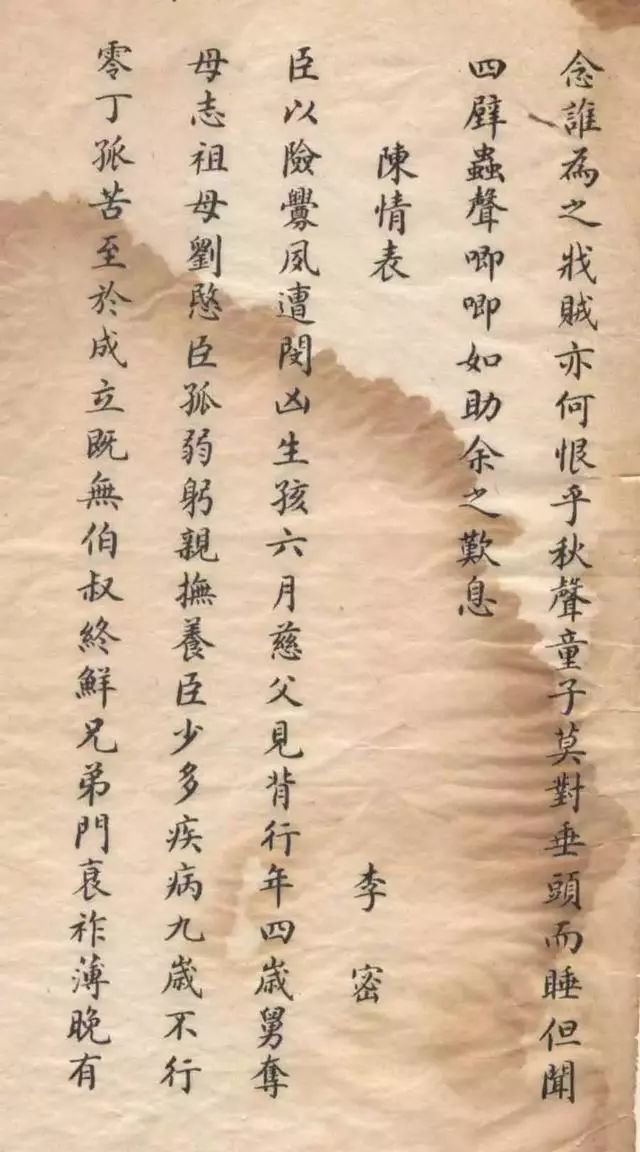 念誰為之戕賊亦何恨乎秋聲童子莫對垂頭而睡但聞
四壁蟲聲唧唧如助余之歎息
陳情表 李密
臣以險釁夙遭閔凶生孩六月慈父見背行年四歲舅奪
母志祖母劉愍臣孤弱躬親撫養臣少多疾病九歲不行
零丁孤苦至於成立既無伯叔終鮮兄弟門衰祚薄晚有